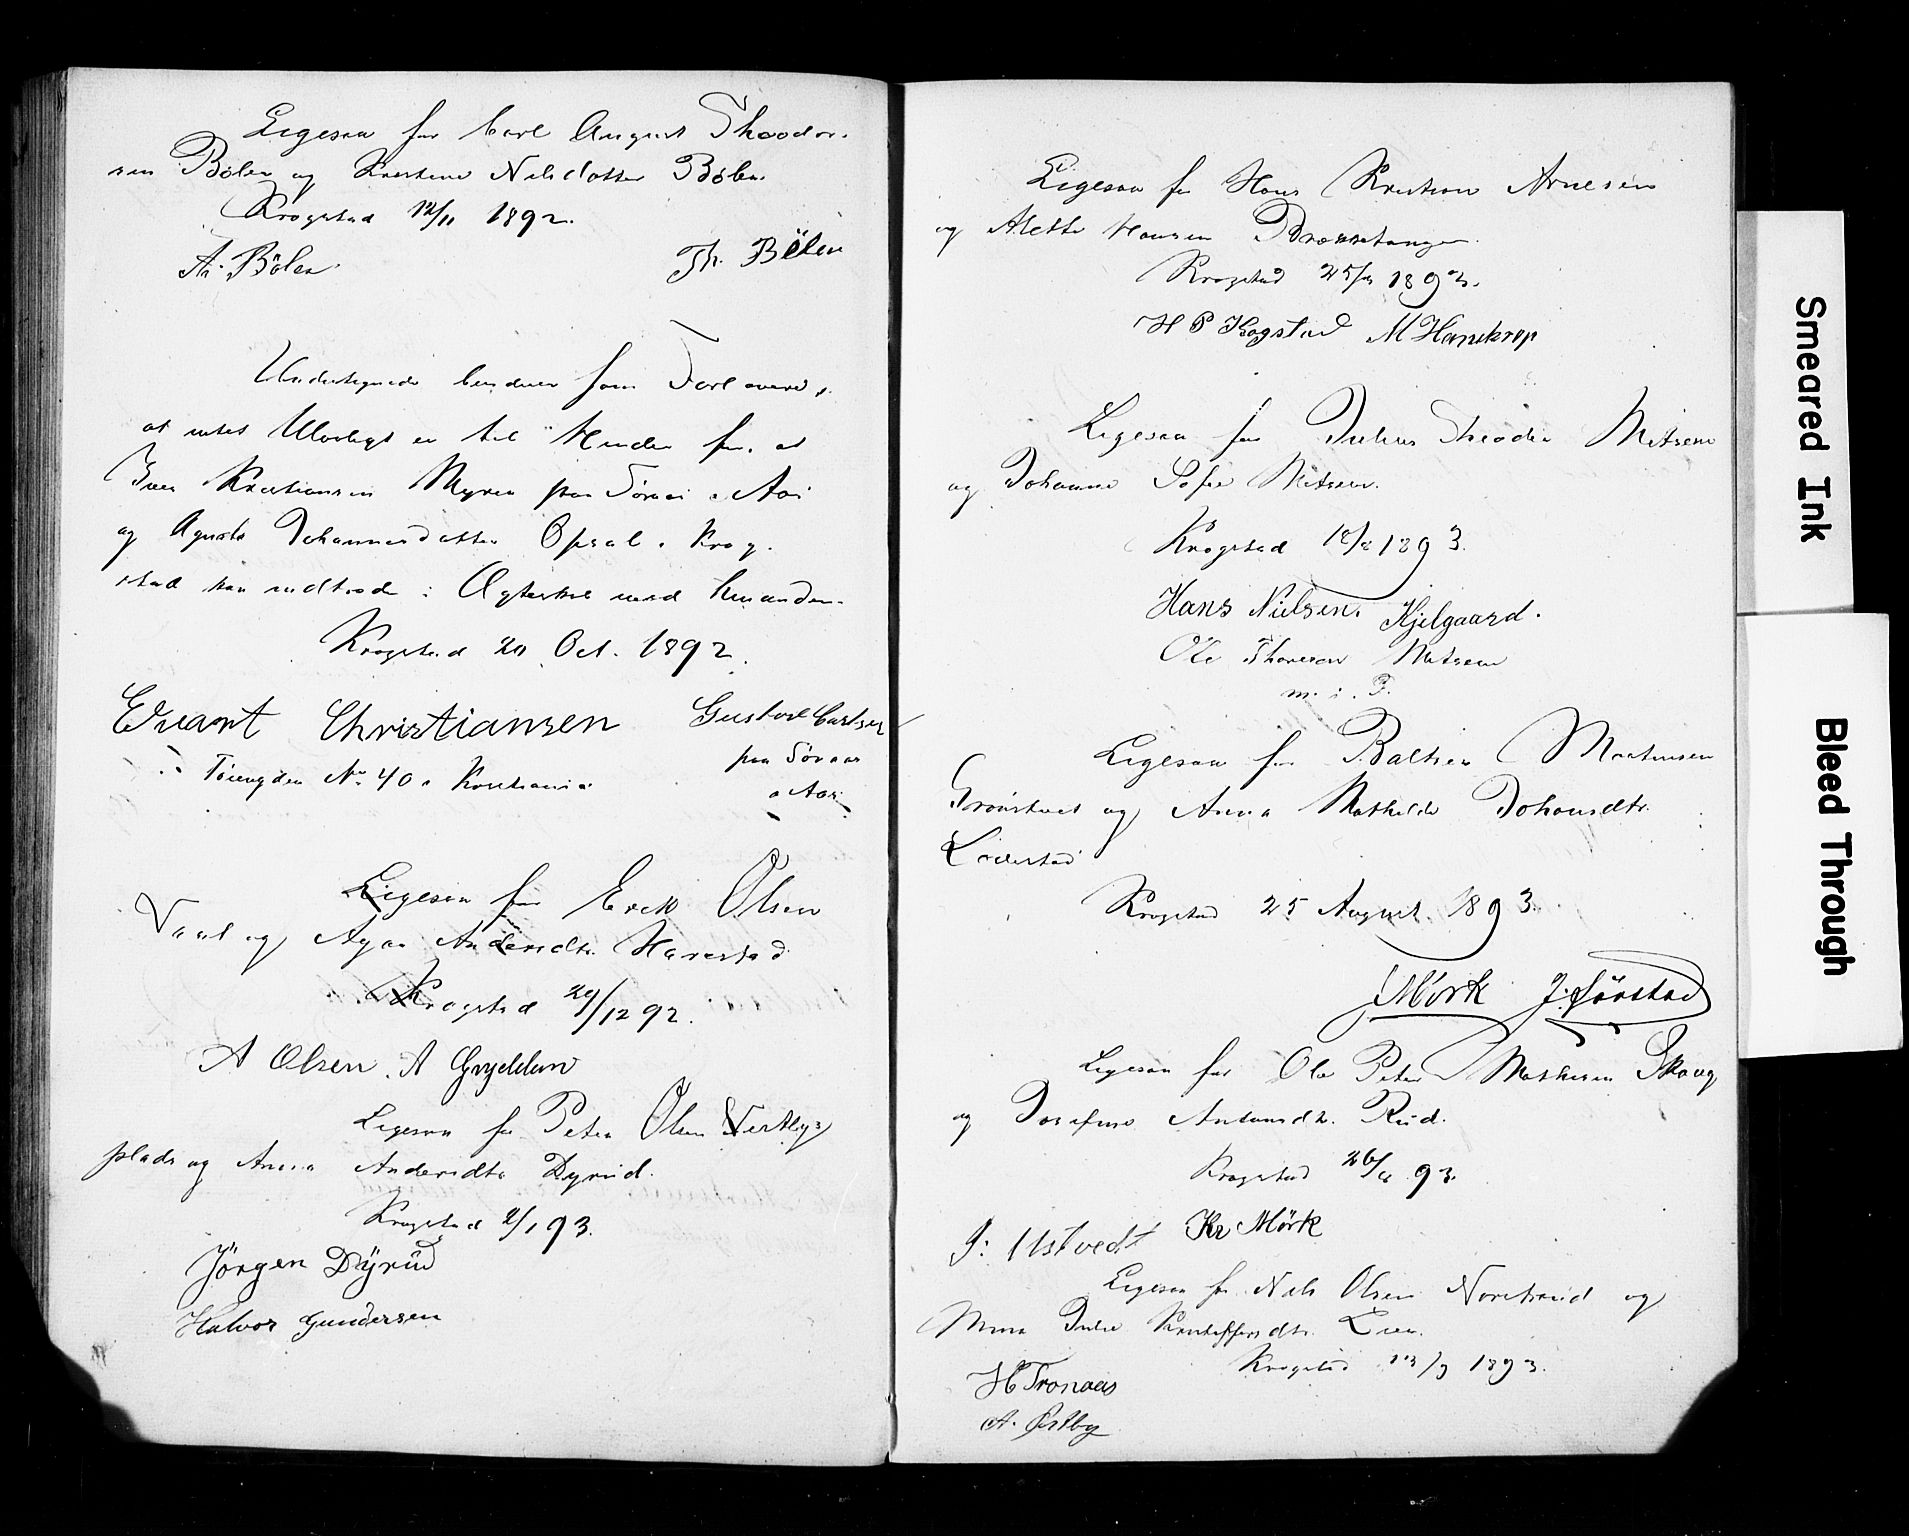 Ligesaa for Carl August Theodor-
sen Bölen og Kristine Nilsdatter Bölen.
Krogstad 12/11 1892.
A. Bölen. Th. Bölen
Undertegnede bevidner som Forlovere,
at intet Ulovligt er til Hinder for, at
Iver Kristiansen Myren fra Söraas i Aas
og Agusta Johannesdatter Opsal i Krog-
stad kan indtræde i Ægteskab med hinanden.
Krogstad 20 Oct. 1892.
Evart Christiansen Gustav Carlsen
Töiengden No 40 i Kristiania paa Söraas
i Aas
Ligesaa for Erik Olsen
Vaal og Andersdtr. Harestad
Krogstad 29/12 92.
A Olsen. A Gryddum
Ligesaa for Peter Olsen Vestbys
plads og Anna Andersdtr Dyrud.
Krogstad 2/1 93.
Jörgen Dÿrüd
Halvor Gundersen
Ligesaa for Hans Kristian Arnesen
og Alette Hansen
Krogstad 25/3 1893.
H P Kogstad M Hanekrop
Ligesaa for Julius Theodor Mitsem
og Johanne Sofie Mitsem.
Krogstad 18/8 1893.
Hans Nielsen. Kjelgaard.
Ole Thoresen Mitsem
m. i. P.
Ligesaa for Baltser Martinsen
Grönstvet og Anna Mathilde Johansdtr.
Krogstad 25 August 1893.
Mörk J. Sörstad
Ligesaa for Ole Peter Mathisen Skoug
og Josefine Antonsdtr. Rud.
Krogstad 26/8 93.
J: Ustvedt Kr Mörk
Ligesaa for Nils Olsen og
Mina Julie Kristoffersdtr. Lien.
Krogstad 13/9 1893.
H Tronaas
A. Østby
Smeared Ink
Bleed Through